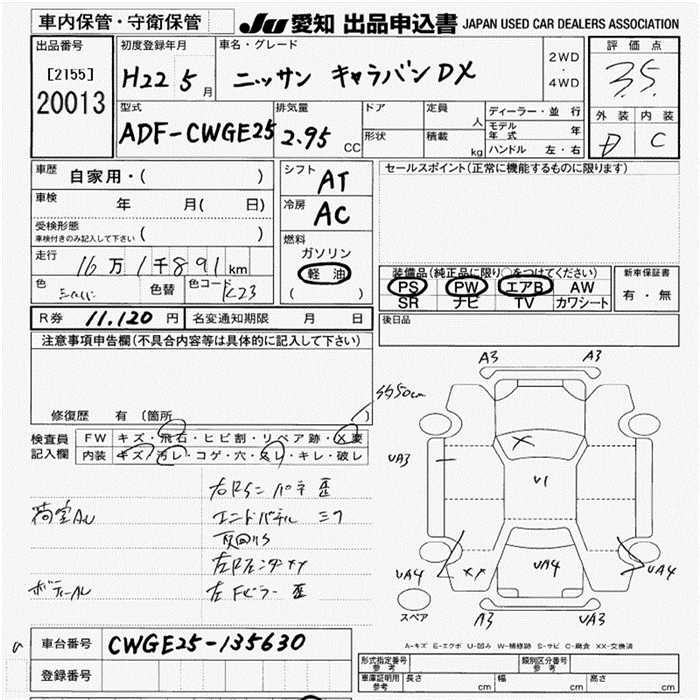 車内保管・守衛保管
JU 愛知 出品申込書 JAPAN USED CAR DEALERS ASSOCIATION
出品番号 初度登録年月 車名・グレード 2WD・4WD 評価点
[2155] H22 5月 ニッサン キャラバンDX 3.5
20013
型式 排気量 ドア 定員 人 ディーラー・並行 外装 内装
ADF-CWGE25 2.95 CC 形状 積載 kg モデル年式 年 D C
ハンドル 左・右
車歴 自家用・( ) シフト AT セールスポイント(正常に機能するものに限ります)
車検 年 月( 日) 冷房 AC
受検形態 ( )
車検付きのみ記入して下さい
燃料 ガソリン
走行 16万1千891km 軽油 装備品(純正品に限り○をつけてください) 新車保証書
色 シルバー 色替 色コード K23 ( ) PS PW エアB AW 有・無
SR ナビ TV カワシート
R券 11,120円 名変通知期限 月 日 後日品
注意事項申告欄(不具合内容等は具体的に記入して下さい)
A3 A3
50cm
修復歴 有(箇所 )
検査員記入欄 FW キズ・飛石・ヒビ割・リペア跡・X要
内装 キズ・汚レ・コゲ・穴・スレ・キレ・破レ
UA3 U1
歪
荷室AU エンド
UA4 XX UA4 UA4
左Fピラー 歪
スペア A3 UA3
A-キズ E-エクボ U-凹み W-補修跡 S-サビ C-腐食 XX-交換済
車台番号 CWGE25-135630
登録番号
型式指定番号 参考 類別区分番号 参考
車庫証明用 参考 長さ cm 幅 cm 高さ cm